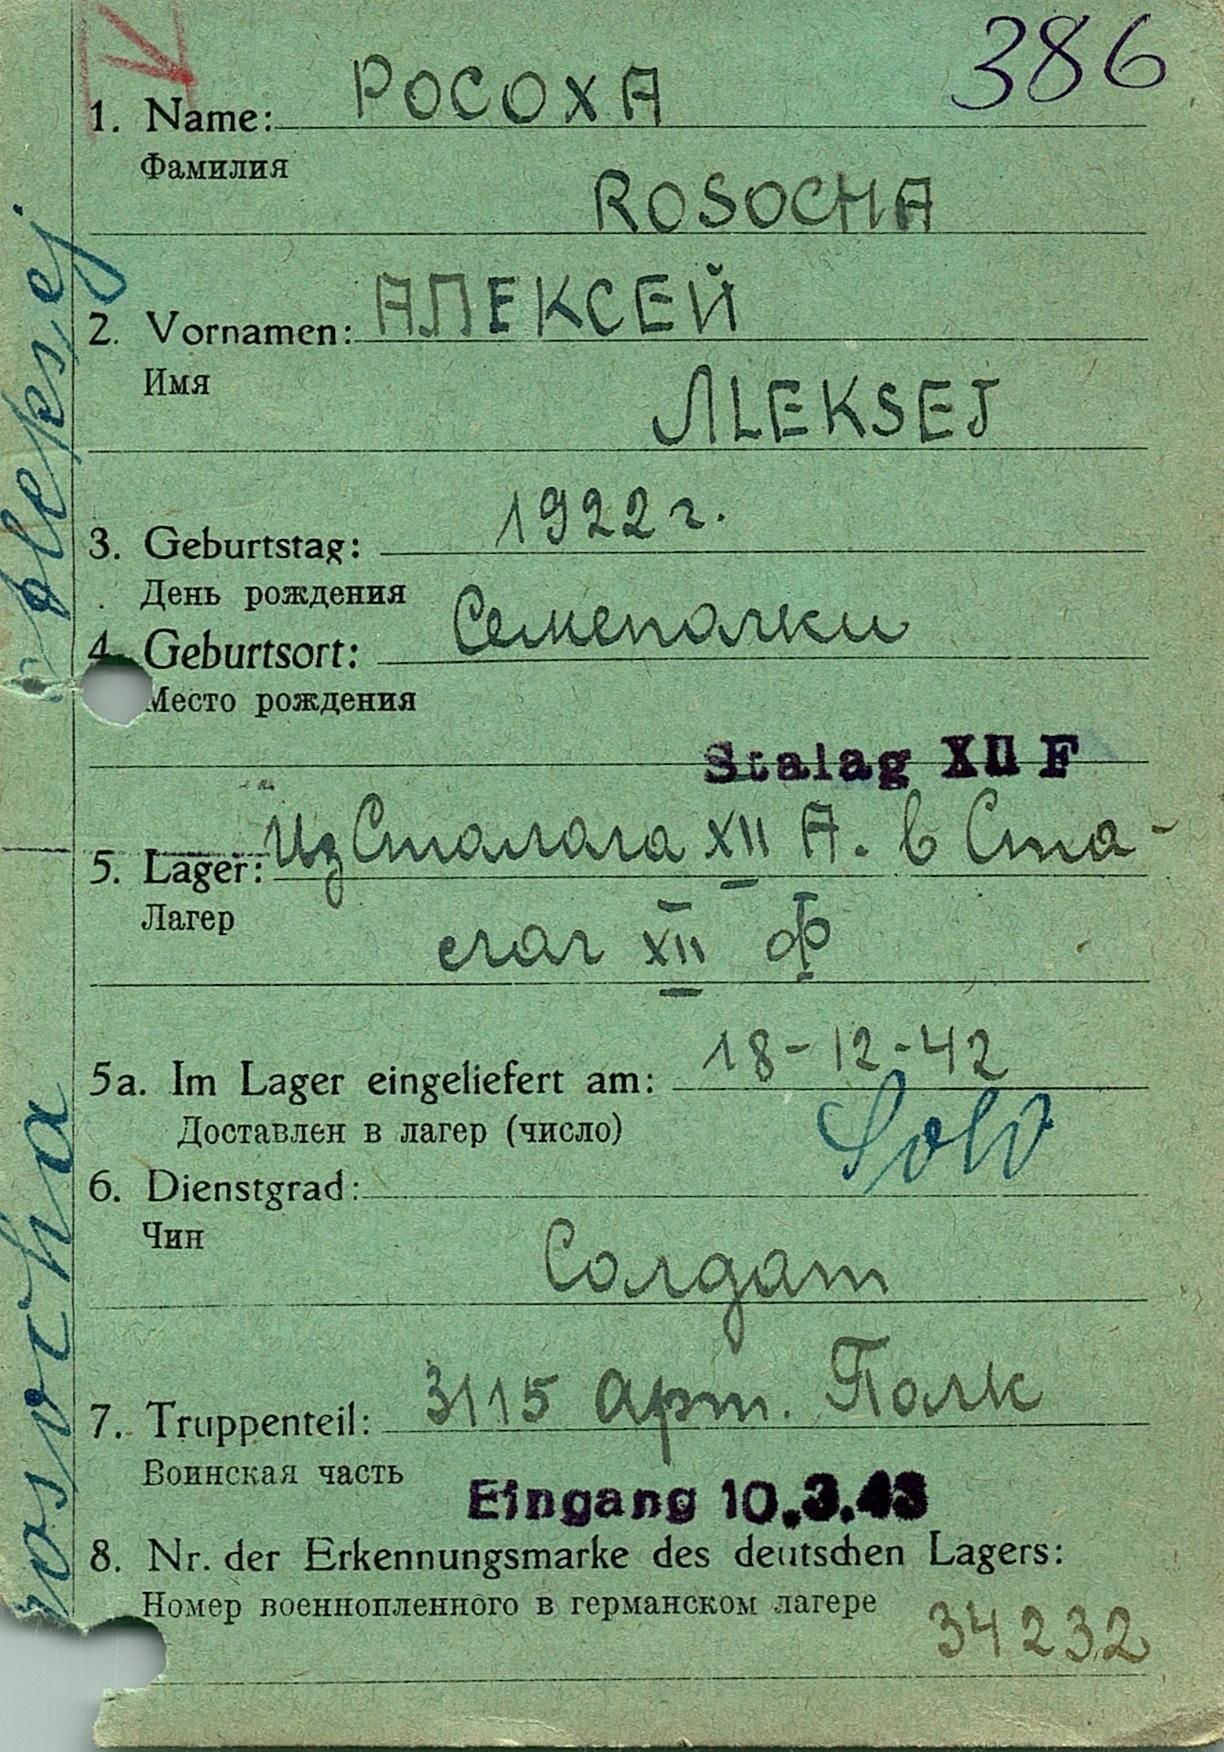 386
1. Name: РОСОХА
Фамилия
ROSOCHA
2. Vornamen: АЛЕКСЕЙ
Имя
ALEKSEJ
3. Geburtstag: 1922 г.
День рождения
4. Geburtsort: Семеполки
Место рождения
Stalag XII F
5. Lager: Из Сталага XII А. в Ста-
Лагер
лаг XII Ф
5a. Im Lager eingeliefert am: 18-12-42
Доставлен в лагер (число)
6. Dienstgrad:
Чин
Солдат
7. Truppenteil: 3115 арт. Полк
Воинская часть
Eingang 10.3.43
8. Nr. der Erkennungsmarke des deutschen Lagers:
Номер военнопленного в германском лагере
34232
Rosocha Aleksej